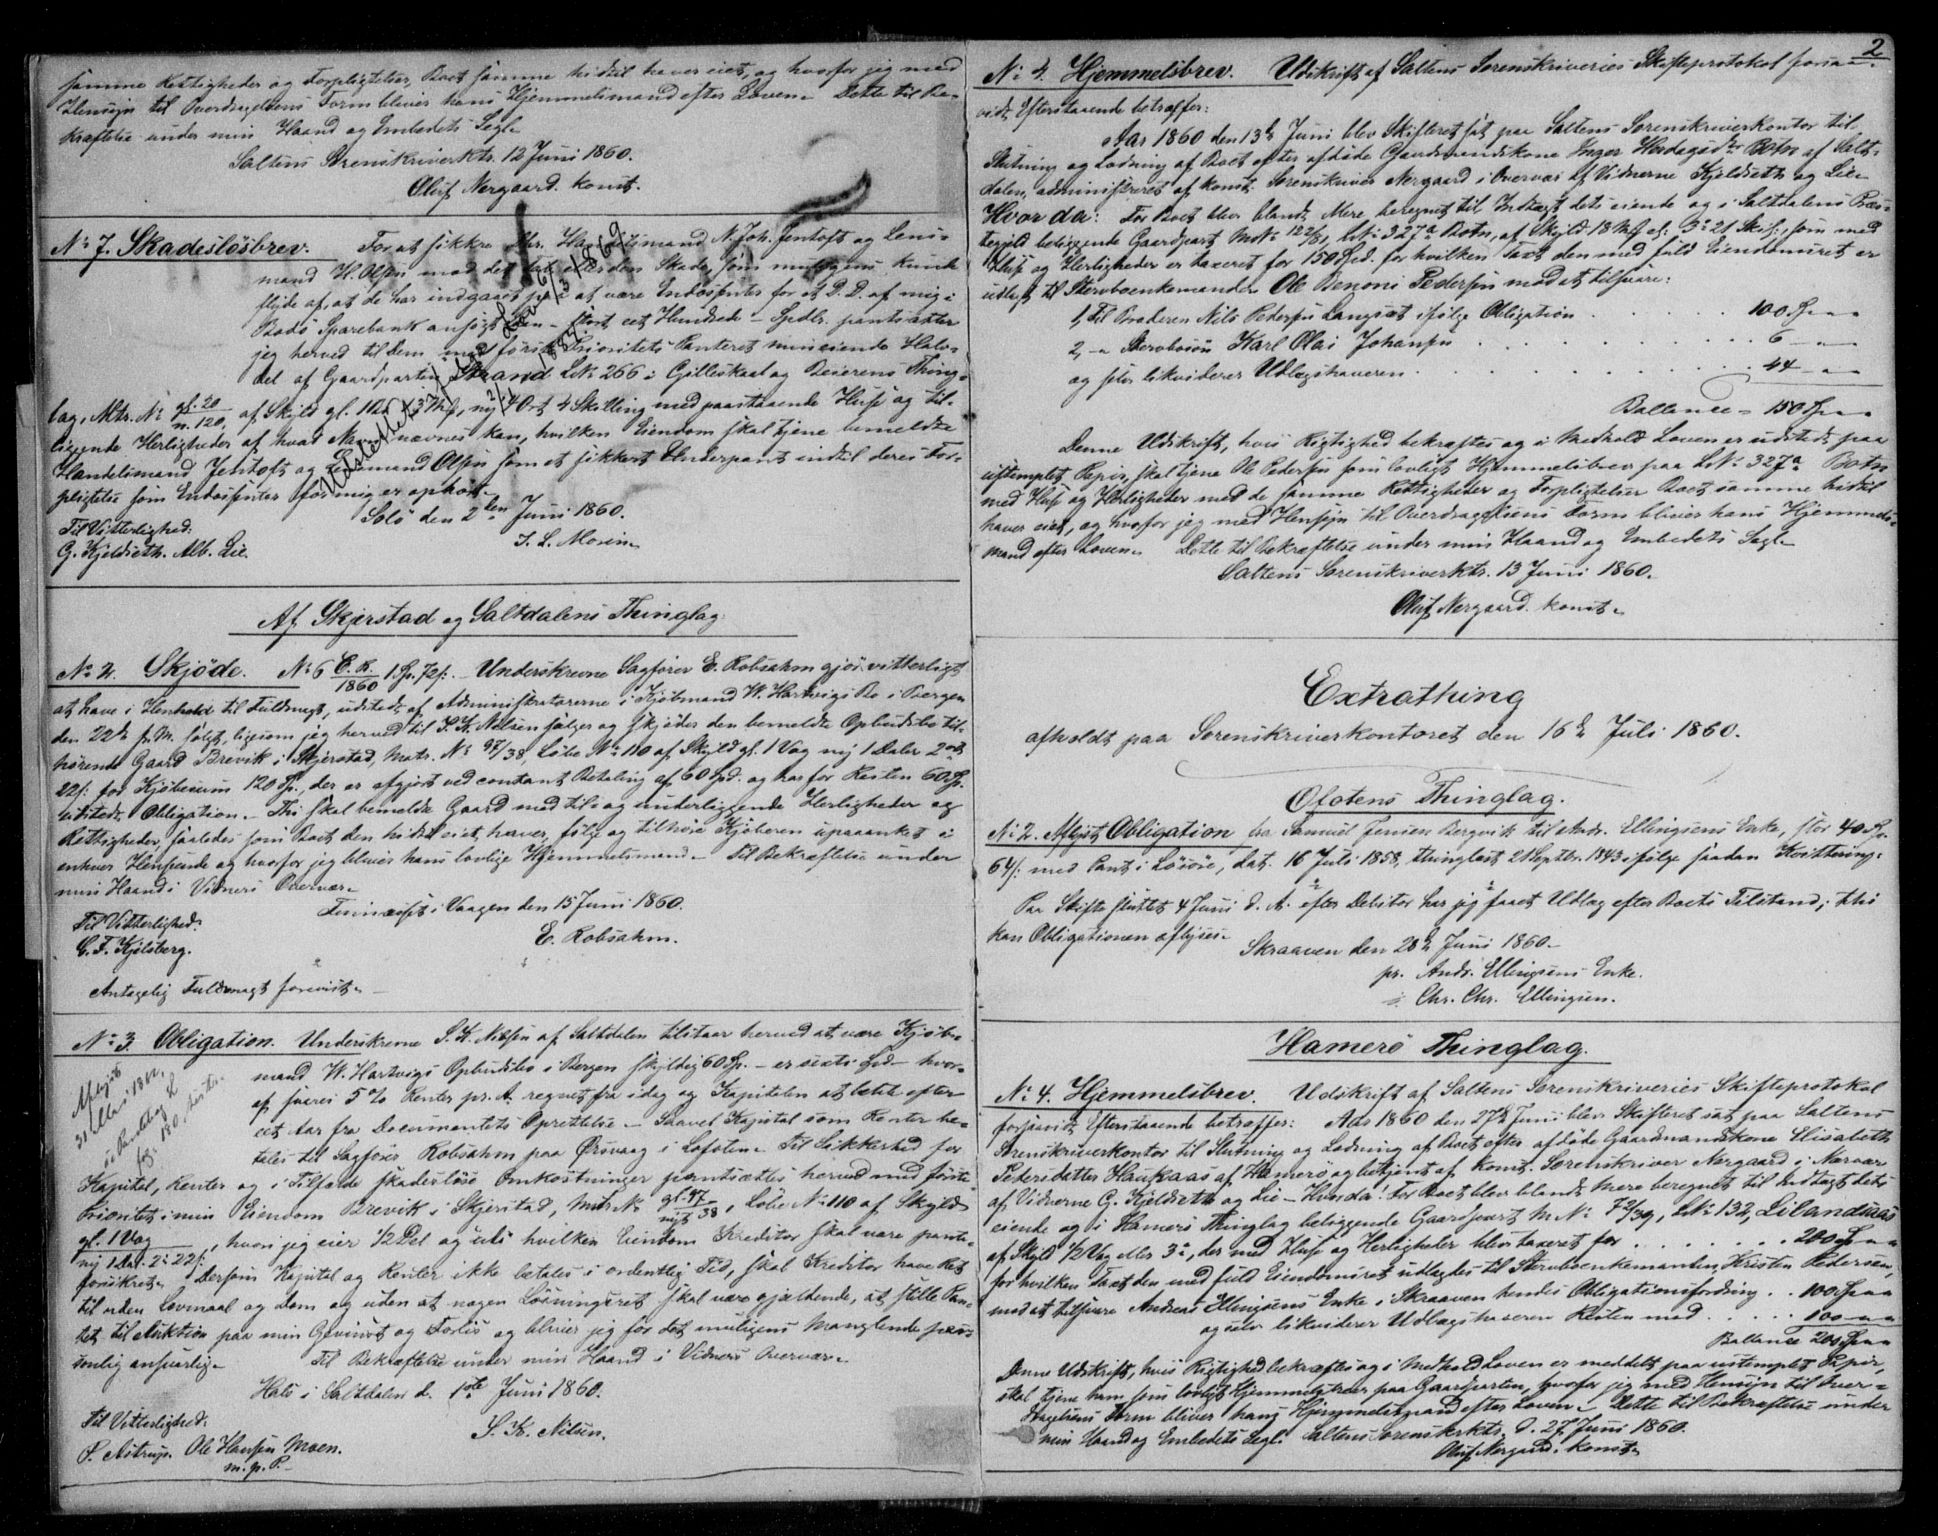 samme Rettigheder og Forpligtelser, Boet samme hidtil haver eiet, og hvorfor jeg med
Hensyn til Overdragelsens Form bliver hans Hjemmelsmand efter Loven. Dette til Be-
kræftelse under min Haand og Embedets Segl.
Saltens Sorenskriverktr. 12 Juni 1860.
Oluf Nergaard. konst.
No 7. Skadesløsbrev. For at sikkre Hr. Handelsmand N. Joh. Jentoft og Lens-
mand H. Olsen mod det Tab eller den Skade, som muligens kunde
flyde af at de har indgaaet paa at være Endosenter for et D. D. af mig i
Bodø Sparebank ansøgt Laan - stort eet Hundrede - Spdlr. pantsætter
jeg herved til Dem med første Prioritets Panteret min eiende Halv-
del af Gaardparten Strand Lnr 266 i Gilleskaal og Beierens Thing-
lag, Mtr. No gl. 20 / n. 120, af Skyld gl. 1 Pd 3 Mk, ny 4 Ort 4 Skilling med paastaaende Huse og til-
liggende Herligheder af hvad Navn nævnes kan, hvilken Eiendom skal tjene bemeldte
Handelsmand Jentoft og Lensmand Olsen som et sikkert Underpant indtil deres For-
pligtelse som Endosenter for mig er ophørt.
Solø den 2den Juni 1860.
Til Vitterlighed:
G. Kjeldseth. Alb. Lie.
Udslettet ifølge Lov 6/3 1869
Af Skjerstad og Saltdalens Thinglag.
No 2. Skjøde. No 6 E. R. / 1860 1 Sp. 72 s. - Underskrevne Sagfører E. Robsahm gjør vitterligt
at have i Henhold til Fuldmagt, udstedt af Administratorerne i Kjøbmand W. Hartvigs Bo i Bergen
den 22de f. M. solgt, ligesom jeg herved til S. K. Nilsen sælger og skjøder den bemeldte Opbudsbo til-
hørende Gaard Brevik i Skjerstad, Matr. No 47/38, Løbe No 110 af Skyld gl. 1 Vog ny 1 Daler 2 ort
22 s. for Kjøbesum 120 Sp., der er afgjort ved contant Betaling af 60 Spd. og har for Resten 60 Sp.
udstedt Obligation. Thi skal bemeldte Gaard med til- og underliggende Herligheder og
Rettigheder, saaledes som Boet den hidtil eiet haver, følge og tilhøre Kjøberen upaaanket i
enhver Henseende og hvorfor jeg bliver hans lovlige Hjemmelsmand. - Til Bekræftelse under
min Haand i Vidners Overvær.
Finnæset i Vaagen den 15 Juni 1860.
Til Vitterlighed:
E. Robsahm.
C. F. Kjelsberg.
Antagelig Fuldmagt forevist.
No 3. Obligation. Underskrevne S. K. Nilsen af Saltdalen tilstaar herved at være Kjøb-
mand W. Hartvigs Opbudsbo i Bergen skyldig 60 Sp. - er sexti Spd - hvor-
af svares 5 % Renter pr. A. regnet fra idag og Kapitalen at betale efter
eet Aar fra Documentets Oprettelse. - Saavel Kapital som Renter be-
tales til Sagfører Robsahm paa Ørsvaag i Lofoten. Til Sikkerhed for
Kapital, Renter og i Tilfælde skadesløse Omkostninger pantsættes herved med første
Prioritet i min Eiendom Brevik i Skjerstad, Matr. No gl. 47 / nyt 38, Løbe No 110 af Skyld
gl. 1 Vog / ny 1 Dal. 2 22 s., hvori jeg eier 1/2 Del og uti hvilken Eiendom Kreditor skal være pante-
forsikret. Dersom Kapital og Renter ikke betales i ordentlig Tid, skal Kreditor have Ret
til uden Lovmaal og Dom og uden at nogen Løsningsret skal være gjældende, at stille Pan-
tet til Auktion paa min Gevinst og Forlis og bliver jeg for det muligens Manglende per-
sonlig ansvarlig. Til Bekræftelse under min Haand i Vidners Overvær.
Hals i Saltdalen d. 1ste Juni 1860.
Til Vitterlighed:
S. K. Nilsen.
Ole Hansen Moen.
m. p. P.
Aflyst
2
No 4. Hjemmelsbrev. Udskrift af Saltens Sorenskriveries Skifteprotokol forsaa-
vidt Efterstaaende betræffer:
Aar 1860 den 13de Juni blev Skifteret sat paa Saltens Sorenskriverkontor til
Slutning og Lodning af Boet efter afdøde Gaardmandskone Inger Botn af Salt-
dalen, administreret af konst. Sorenskriver Nergaard i Overvær af Vidnerne Kjeldseth og Lie
Hvor da: For Boet blev blandt Mere beregnet til Indtægt dets eiende og i Saltdalens Præs-
tegjeld beliggende Gaardpart, Mtr 122/81, Lnr 327a Botn, af Skyld 18 Mk el. 3 21 Skil., som med
Huse og Herligheder er taxeret for 150 Spd. for hvilken Taxt den med fuld Eiendomsret er
udlagt til Stervboenkemanden Ole Benoni Pedersen mod at tilsvare:
1, Til Broderen Nils Pedersen Langset ifølge Obligation . . . . . 100 Sp „ „
2, - „ Stervboisøn Karl Olai Johansen . . . . . 6 - „ „
og selv likviderer Udlægshaveren . . . . . 44 - „ „
Ballance - 150 Sp „ „
Denne Udskrift, hvis Rigtighed bekræftes og i Medhold Loven er udstedt paa
ustemplet Papir, skal tjene Ole Pedersen som lovligt Hjemmelsbrev paa Lnr 327a Botn
med Huse og Herligheder med de samme Rettigheder og Forpligtelser Boet samme hidtil
haver eiet, og hvorfor jeg med Hensyn til Overdragelsens Form bliver hans Hjemmels-
mand efter Loven. Dette til Bekræftelse under min Haand og Embedets Segl.
Saltens Sorenskriverktr. 13 Juni 1860.
Oluf Nergaard. konst.
Extrathing
afholdt paa Sorenskriverkontoret den 16de Juli 1860.
Ofotens Thinglag.
No 2. Aflyst Obligation fra Samuel Jensen Bergvik til Andr. Ellingsens Enke, stor 40 Sp.
64 s. med Pant i , dat. 16 Juli 1858, thinglæst 21 Septbr. 1843 ifølge saadan Kvittering:
Paa Skifte sluttet 4 Juni d. A. efter Debitor har jeg faaet Udlæg efter Boets Tilstand; thi
kan Obligationen aflyses.
Skraaven den 28de Juni 1860.
pr. Andr. Ellingsens Enke.
Chr. Chr. Ellingsen.
Hamerø Thinglag.
No 4. Hjemmelsbrev. Udskrift af Saltens Sorenskriveries Skifteprotokol
forsaavidt Efterstaaende betræffer: Aar 1860 den 27de Juni blev Skifteret sat paa Saltens
Sorenskriverkontor til Slutning og Lodning af Boet efter afdøde Gaardmandskone Elisabeth
Pedersdatter Haukaas af Hamerø og betjent af konst. Sorenskriver Nergaard i Nærvær
af Vidnerne G. Kjeldseth og Lie - Hvor da: For Boet blev blandt Mere beregnet til Indtægt dets
eiende og i Hamerø Thinglag beliggende Gaardpart M No 72/39, Lnr 132, Lilandsaas
af Skyld 1/2 Vog eller 3, der med Huse og Herligheder blev taxeret for . . . . . 200 Sp „ „
for hvilken Taxt den med fuld Eiendomsret udlagdes til Stervboenkemanden Kristen Pedersen,
mod at tilsvare Andreas Ellingsens Enke i Skraaven hendes Obligationsfordring . . 100 Sp „ „
og selv likviderer Udlægshaveren Resten med . . . . . 100 „ „
Ballance 200 Sp „ „
Denne Udskrift, hvis Rigtighed bekræftes og i Medhold Loven er meddelt paa ustemplet Papir,
skal tjene ham som lovligt Hjemmelsbrev paa Gaardparten, hvorfor jeg med Hensyn til Over-
dragelsens Form bliver hans Hjemmelsmand efter Loven. - Dette til Bekræftelse under
min Haand og Embedets Segl. Saltens Sorenskrktr. d. 27 Juni 1860.
Oluf Nergaard. konst.